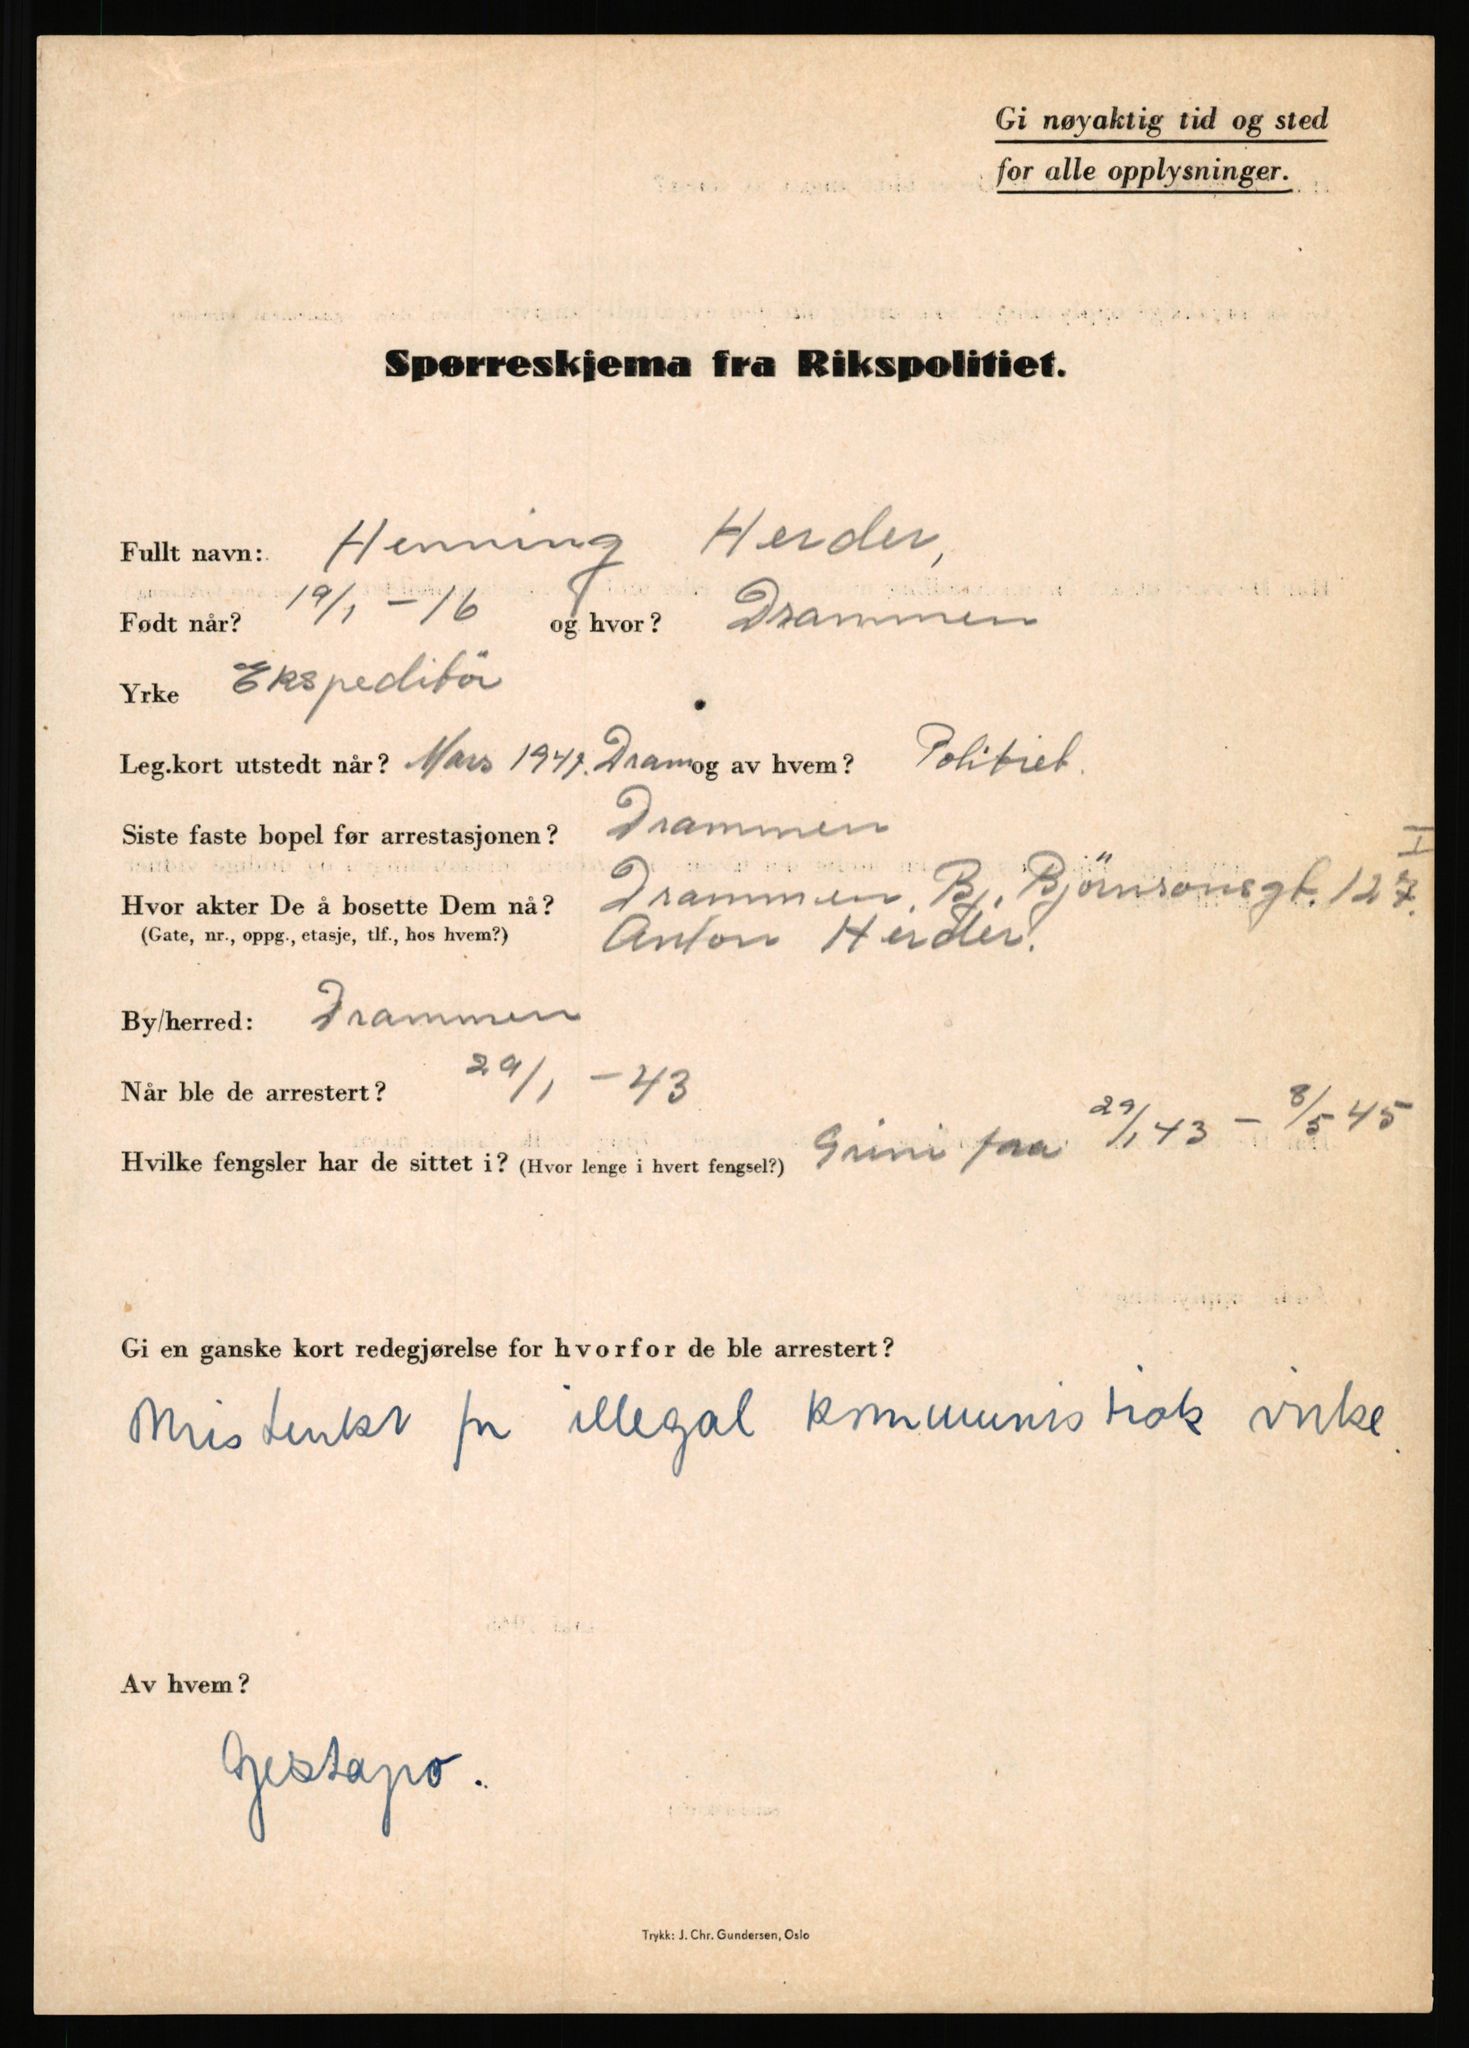 Gi nøyaktig tid og sted
for alle opplysninger.
Spørreskjema fra Rikspolitiet.
Fullt navn: Henning Herder,
Født når? 19/1 - 16 og hvor? Drammen
Yrke Ekspeditör
Leg.kort utstedt når? Mars 1941. Dram og av hvem? Politiet.
Siste faste bopel før arrestasjonen? Drammen
Hvor akter De å bosette Dem nå? Drammen. Bj. Björnsonsgt. 127. I
(Gate, nr., oppg., etasje, tlf., hos hvem?) Anton Herder.
By/herred: Drammen
Når ble de arrestert? 29/1 - 43
Hvilke fengsler har de sittet i? (Hvor lenge i hvert fengsel?) Grini fra 29/1 43 - 8/5 45
Gi en ganske kort redegjørelse for hvorfor de ble arrestert?
Mistenkt for illegal kommunistisk virke.
Av hvem?
Gestapo.
Trykk: J. Chr. Gundersen, Oslo